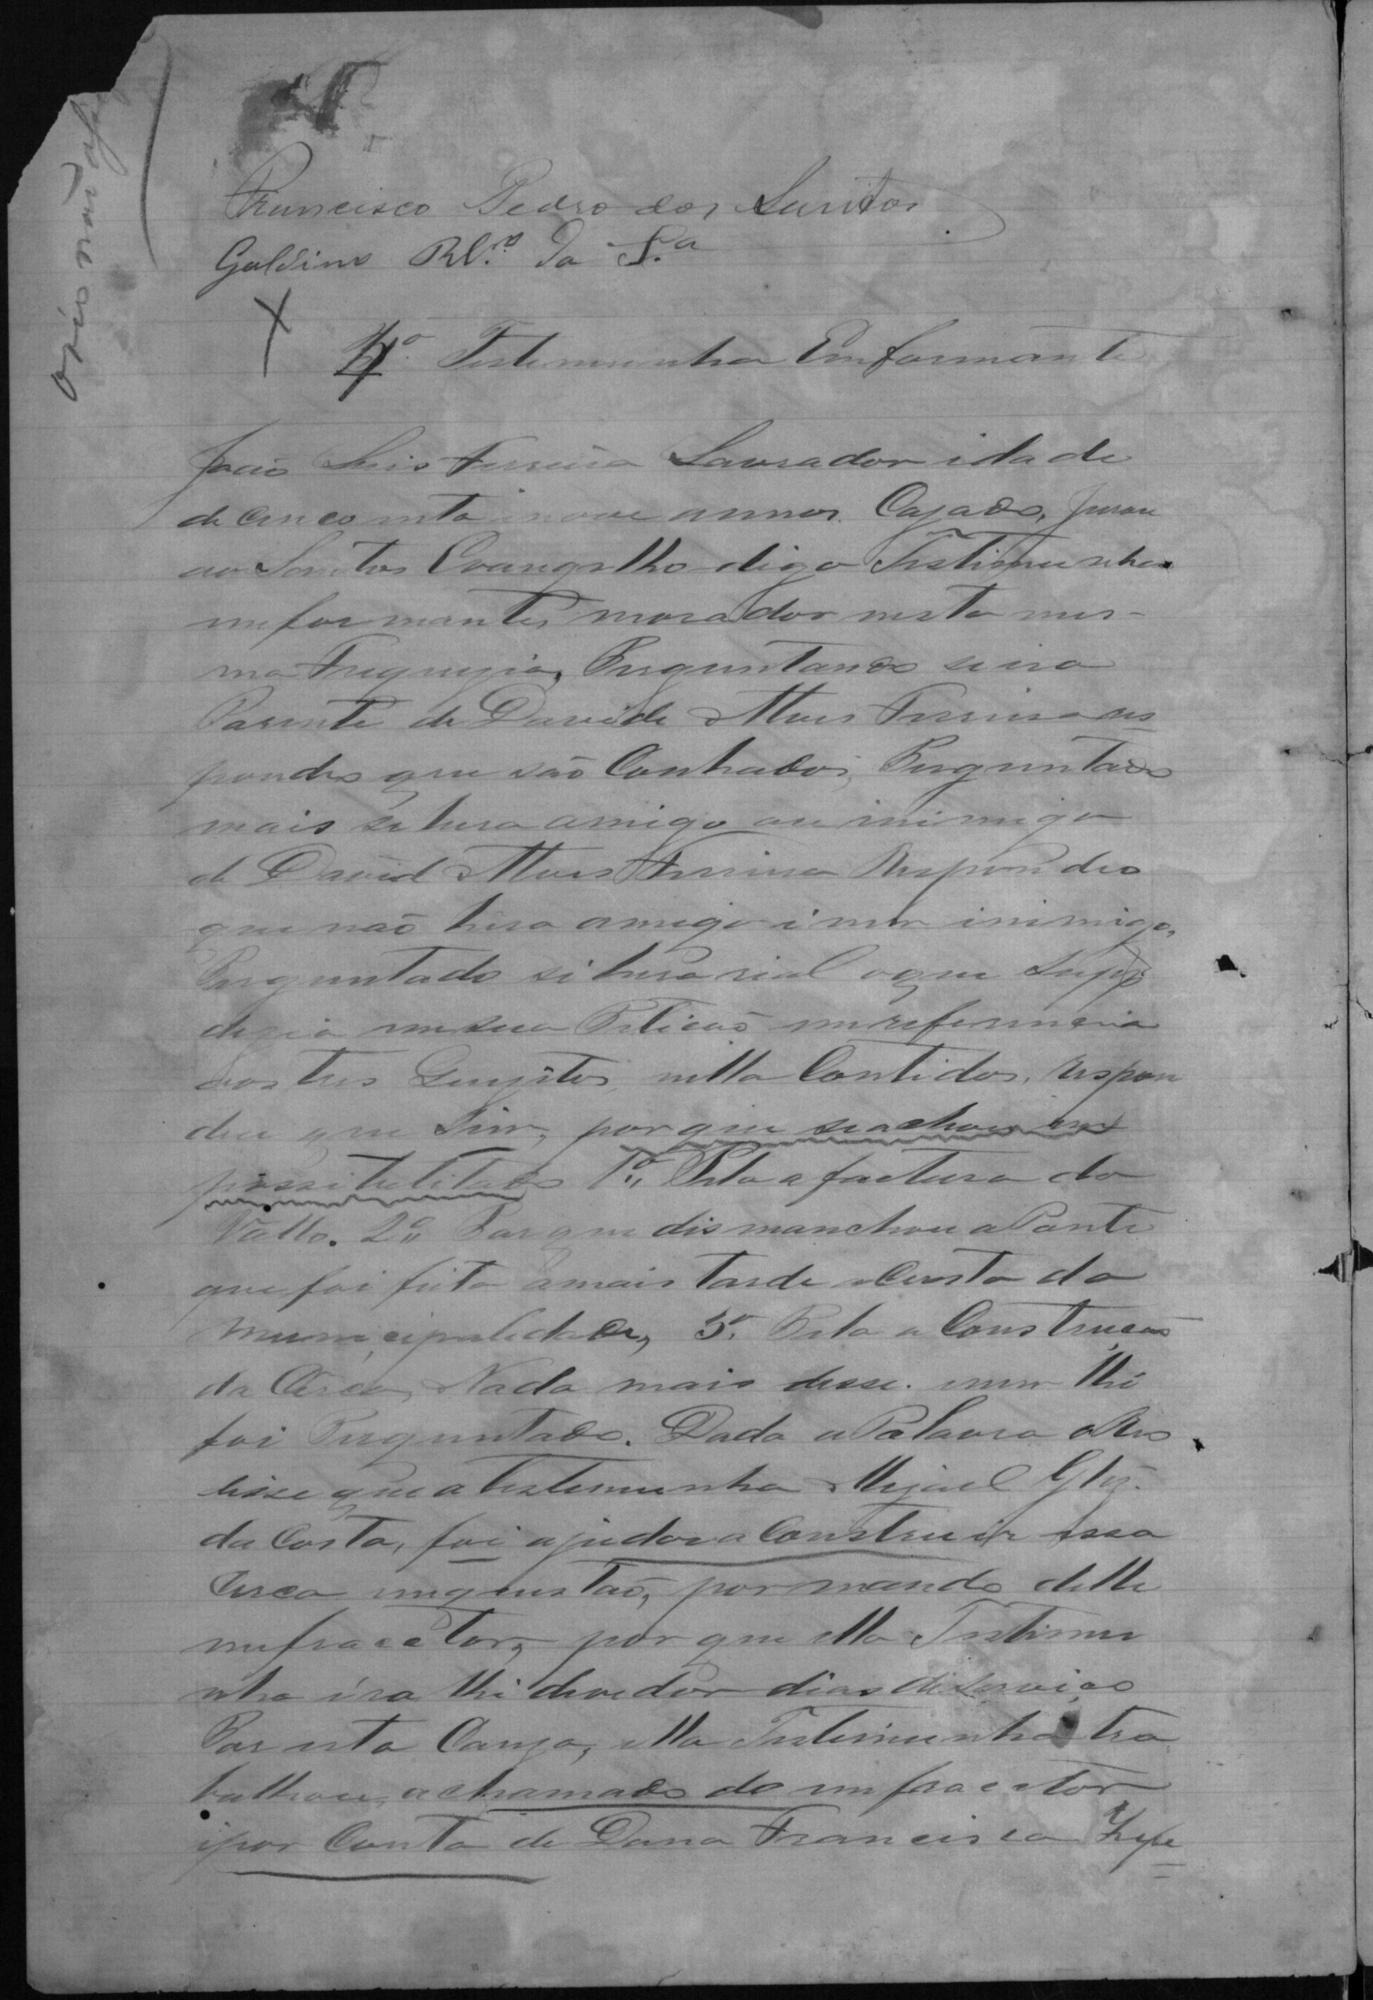 Francisco Pedro dos Santos
Galdino Rb.ro da S.a
4.a Testemunha Emformante
João Luis Ferreira Lavrador idade
de cincoenta inove annos. Cazado, jurou
ao Santos Evangelho digo Testimunha
imformante, morador nesta mes-
ma Freguezia, Perguntando seira
Parente de Davide Alves Ferreira res
pondeo que são Cunhados, Perguntado
mais si hera amigo ou inimigo
de David Alves Ferreira Respondeo
que não hera amigo i nem inimigo,
Perguntado si hera rial oque Supp
dezia em sua Peticão em referencia
aos tres Quezitos nella Contidos, respon
deu que Sim, porque seachou im
possibilitado 1.o Pela a factura do
Vallo. 2.o Porque dismanchou a Ponte
que foi feita amais tarde a Custa da
Municipalidade, 3.o Pela a Construcão
da Cerca, Nada mais disse. enem lhe
foi Perguntado. Dada a Palavra ao Reo
disse que a testemunha Miguel Glz.
da Costa, foi ajudar a Construir essa
Cerca enquestão, por mando delle
imfracctor, por que ella Testimu
nha éra lhe devedor dias de Serviço
Por esta Cauza, ella Testimunha tra
balhou, a chamado do imfracctor
ipor Conta de Dona Francisca Zefe